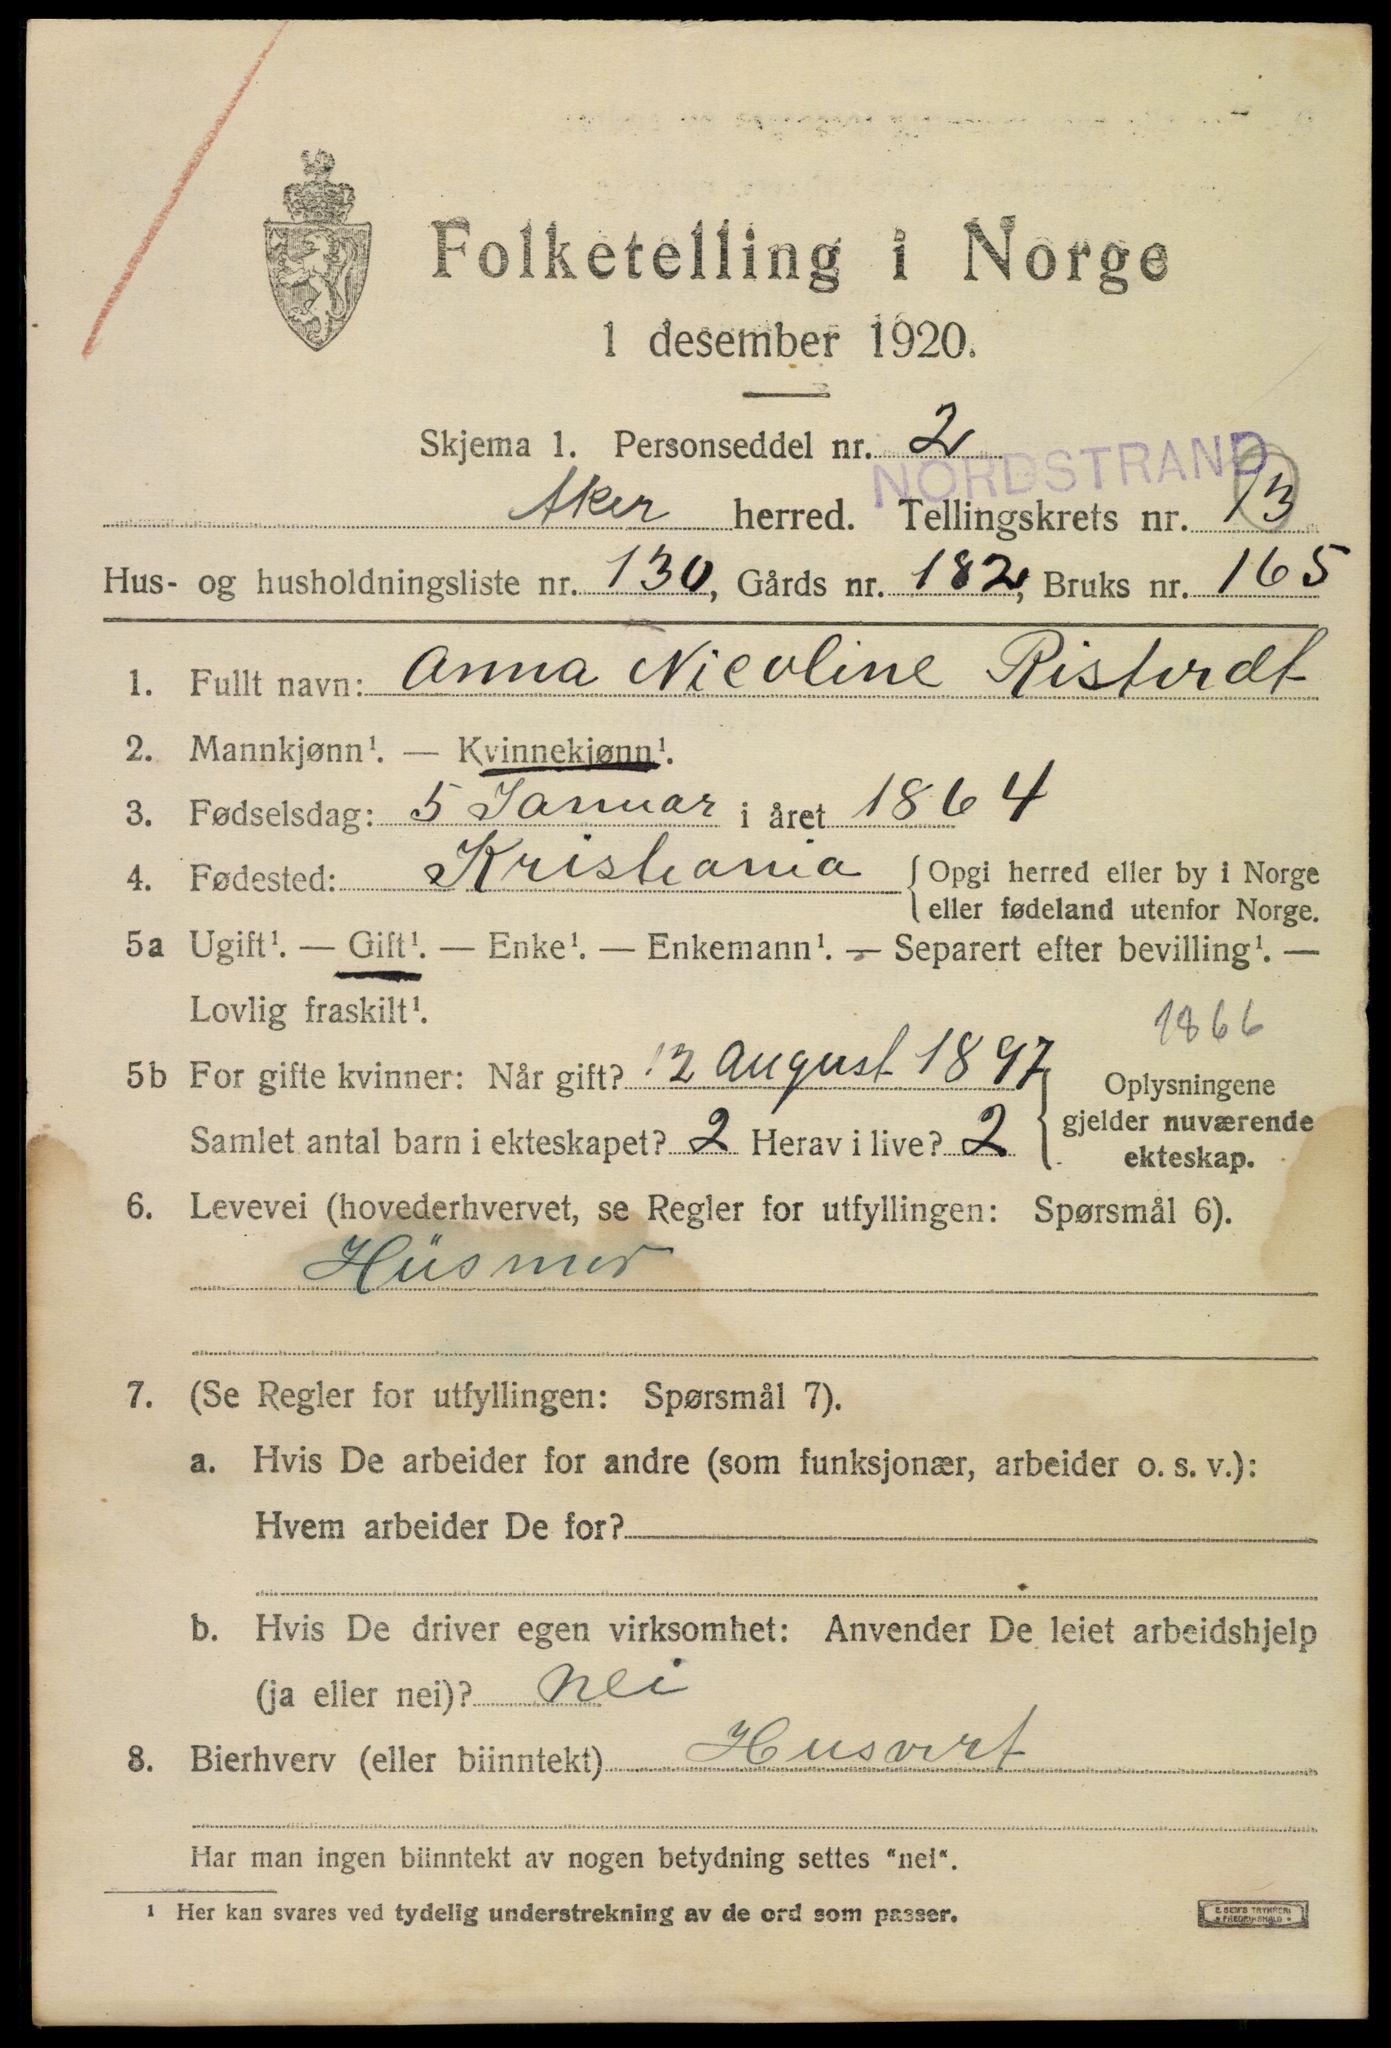 Folketelling i Norge
1 desember 1920.
Skjema 1. Personseddel nr. 2
NORDSTRAND
Aker herred. Tellingskrets nr. 13
Hus- og husholdningsliste nr. 130, Gårds nr. 182, Bruks nr. 165
1. Fullt navn: Anna Nicoline
2. Mannkjønn¹. — Kvinnekjønn¹.
3. Fødselsdag: 5 Januar i året 1864
4. Fødested: Kristiania { Opgi herred eller by i Norge
eller fødeland utenfor Norge.
5a Ugift¹. — Gift¹. — Enke¹. — Enkemann¹. — Separert efter bevilling¹. —
Lovlig fraskilt¹.
1866
5b For gifte kvinner: Når gift? 12 August 1897
Samlet antal barn i ekteskapet? 2 Herav i live? 2
Oplysningene
gjelder nuværende
ekteskap.
6. Levevei (hovederhvervet, se Regler for utfyllingen: Spørsmål 6).
Hüsmor
7. (Se Regler for utfyllingen: Spørsmål 7).
a. Hvis De arbeider for andre (som funksjonær, arbeider o. s. v.):
Hvem arbeider De for?
b. Hvis De driver egen virksomhet: Anvender De leiet arbeidshjelp
(ja eller nei)? nei
8. Bierhverv (eller biinntekt) Husvert
Har man ingen biinntekt av nogen betydning settes "nei".
1 Her kan svares ved tydelig understrekning av de ord som passer.
E. SEM'S TRYKKERI
* FREDRIKSHALD *